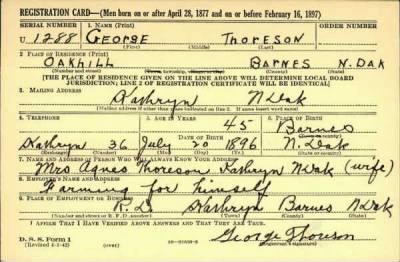 REGISTRATION CARD—(Men born on or after April 28, 1877 and on or before February 16, 1897)
SERIAL NUMBER 1. NAME (Print)
U 1288 GEORGE THORESON
(First) (Middle) (Last)
2. PLACE OF RESIDENCE (Print)
OAKHILL BARNES N. DAK
(Number and street) (Town, township, village, or city) (County) (State)
[THE PLACE OF RESIDENCE GIVEN ON THE LINE ABOVE WILL DETERMINE LOCAL BOARD
JURISDICTION; LINE 2 OF REGISTRATION CERTIFICATE WILL BE IDENTICAL]
3. MAILING ADDRESS
Kathryn N Dak
[Mailing address if other than place indicated on line 2. If same insert word same]
4. TELEPHONE 5. AGE IN YEARS 6. PLACE OF BIRTH
45 Barnes
DATE OF BIRTH (Town or county)
Kathryn 36 July 20 1896 N. Dak
(Exchange) (Number) (Mo.) (Day) (Yr.) (State or country)
7. NAME AND ADDRESS OF PERSON WHO WILL ALWAYS KNOW YOUR ADDRESS
Mrs Agnes Thoreson Kathryn N Dak (wife)
8. EMPLOYER'S NAME AND ADDRESS
Farming for himself
9. PLACE OF EMPLOYMENT OR BUSINESS
R. 2 Kathryn Barnes N Dak
(Number and street or R. F. D. number) (Town) (County) (State)
I AFFIRM THAT I HAVE VERIFIED ABOVE ANSWERS AND THAT THEY ARE TRUE.
D. S. S. Form 1
(Revised 4-1-42) (over) George Thoreson
(Registrant's signature)